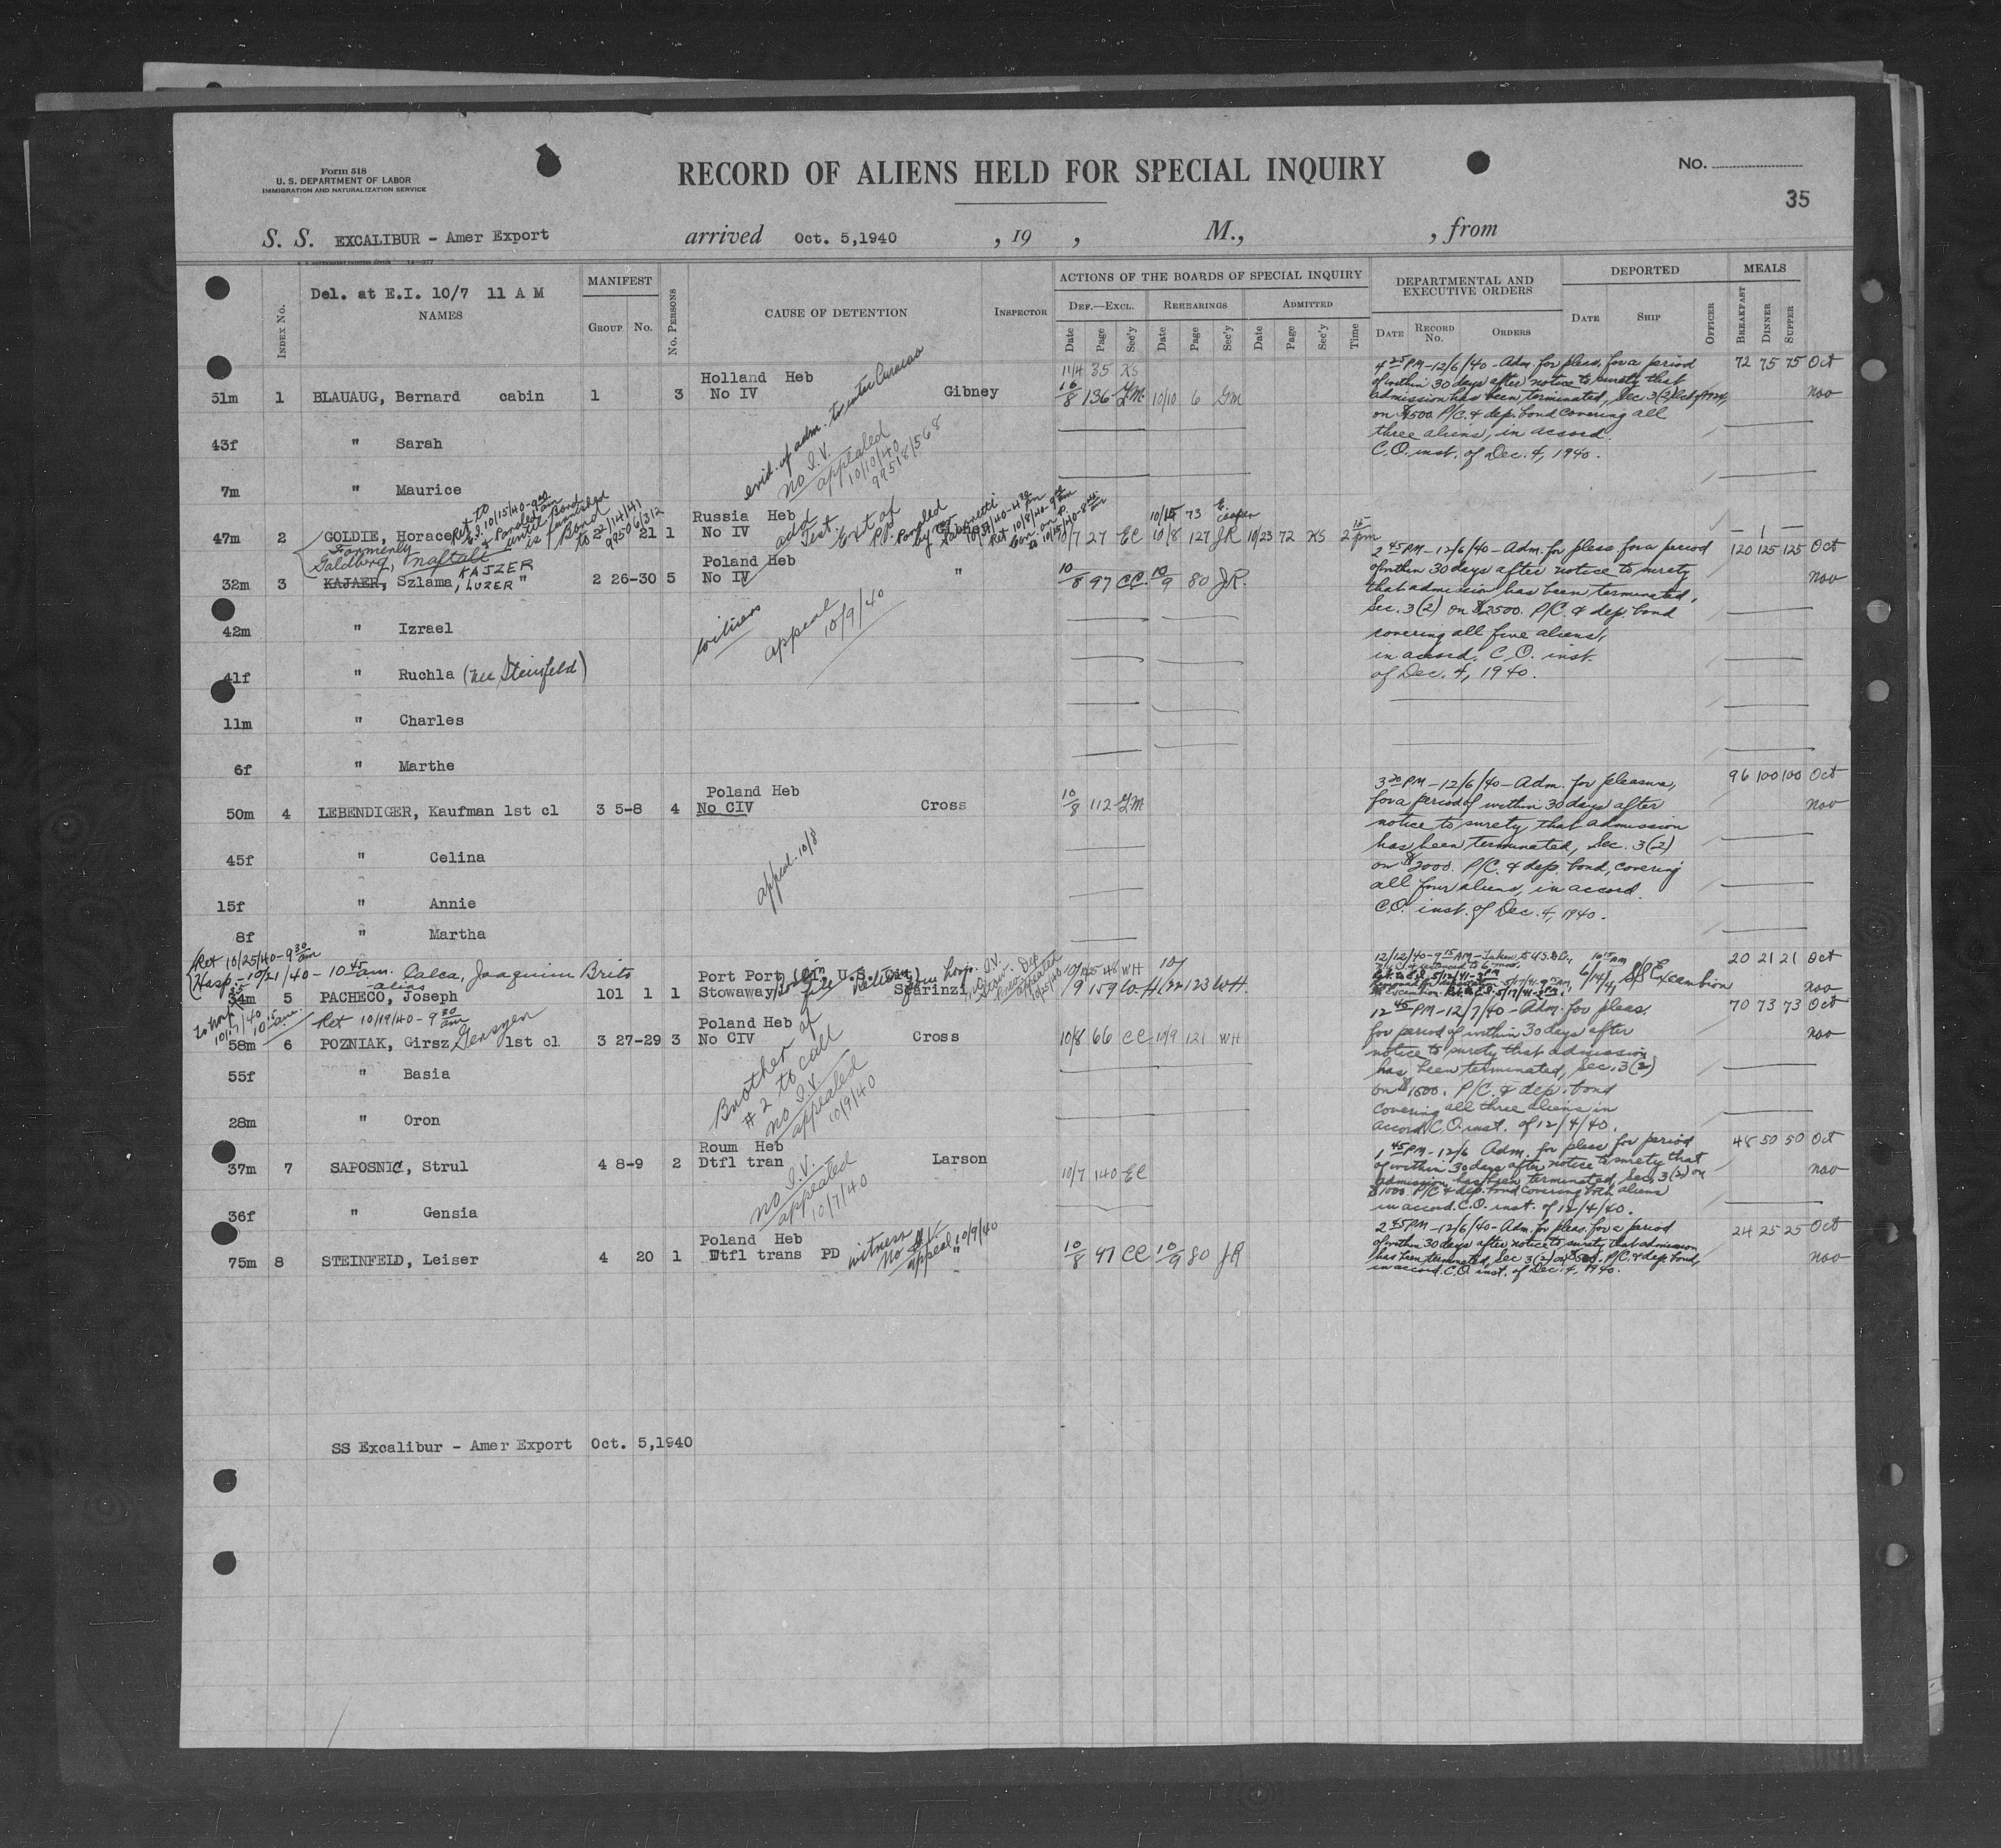 Form 518
U. S. DEPARTMENT OF LABOR
IMMIGRATION AND NATURALIZATION SERVICE
RECORD OF ALIENS HELD FOR SPECIAL INQUIRY
No.
35
S. S. EXCALIBUR - Amer Export arrived Oct. 5,1940 , 19 , M., , from
Index No.
Del. at E.I. 10/7 11 A M
NAMES
MANIFEST
Group No.
No. Persons
CAUSE OF DETENTION
Inspector
ACTIONS OF THE BOARDS OF SPECIAL INQUIRY
Def.—Excl. Rehearings Admitted
Date Page Sec'y Date Page Sec'y Date Page Sec'y Time
DEPARTMENTAL AND
EXECUTIVE ORDERS
Date Record No. Orders
DEPORTED
Date Ship Officer
MEALS
Breakfast Dinner Supper
Holland Heb
11/4 35 KS
51m 1 BLAUAUG, Bernard cabin 1 3 No IV Gibney 10/8 136 GM 10/10 6 GM
evid. of adm. to enter Curacao
no I.V.
appealed
10/10/40
99518/568
4 25 PM - 12/6/40 - Adm. for pleas. for a period
of within 30 days after notice to surety that
admission has been terminated, Sec 3(2)
on $1500. P/C. & dep. bond covering all
three aliens, in accord.
C.O. inst. of Dec. 4, 1940.
72 75 75 Oct
Nov
43f " Sarah
7m " Maurice
Russia Heb
10/15 73 E. Cooper
47m 2 GOLDIE, Horace 2 21 1 No IV 10/7 27 EC 10/8 127 JR 10/23 72 KS 2 15 pm
Formerly
Goldberg, Naftali
Ret to
E.I. 10/15/40 - 9 00 am
& Paroled
until Bond
is furnished
Bond
to 2/14/41
99506/312
add
Test.
Ext of
P.P. Paroled
— 1 —
Poland Heb
32m 3 KAJAER, Szlama, KAJZER LUZER " 2 26-30 5 No IV " 10/8 97 CC 10/9 80 JR.
witness
appeal
10/9/40
2 45 PM - 12/6/40 - Adm. for pleas for a period
of within 30 days after notice to surety
that admission has been terminated,
Sec. 3(2) on $2500. P/C. & dep. bond
covering all five aliens,
in accord. C.O. inst.
of Dec. 4, 1940.
120 125 125 Oct
Nov
42m " Izrael
41f " Ruchla (nee Steinfeld)
11m " Charles
6f " Marthe
Poland Heb
50m 4 LEBENDIGER, Kaufman 1st cl 3 5-8 4 No CIV Cross 10/8 112 GM
apped. 10/8
3 20 PM - 12/6/40 - Adm. for pleasure,
for a period of within 30 days after
notice to surety that admission
has been terminated, Sec. 3(2)
on $2000. P/C. & dep. bond, covering
all four aliens, in accord.
C.O. inst. of Dec. 4, 1940.
96 100 100 Oct
Nov
45f " Celina
15f " Annie
8f " Martha
Ret 10/25/40 - 9 30 am
Hosp - 10/21/40 - 10 45 am. Calca, Joaquim Brito
alias
Port Port (Lin, U.S. Cit.
34m 5 PACHECO, Joseph 101 1 1 Stowaway Scarinzi 10/9 159 WH 10/22 123 WH
To Hosp
10/17/40
10 15 am.
Ret 10/19/40 - 9 30 am
12/12/40 - 9 15 AM - Taken to U.S.D.C.
10 15 am
6/14/41 SS Excambion
20 21 21 Oct
Nov
Poland Heb
58m 6 POZNIAK, Girsz, Gensyen 1st cl 3 27-29 3 No CIV Cross 10/8 66 CC 10/9 121 WH
Brother of
# 2 to call
no I.V.
appealed
10/9/40
12 45 PM - 12/7/40 - Adm. for pleas.
for period of within 30 days after
notice to surety that admission
has been terminated, Sec. 3(2)
on $1500. P/C. & dep. bond
covering all three aliens in
accord C.O. inst. of 12/4/40.
70 73 73 Oct
Nov
55f " Basia
28m " Oron
Roum Heb
37m 7 SAPOSNIC, Strul 4 8-9 2 Dtfl tran Larson 10/7 140 EC
no I.V.
appealed
10/7/40
1 45 PM - 12/6 Adm. for pleas for period
of within 30 days after notice to surety that
admission has been terminated, Sec. 3(2) on
$1000. P/C & dep. bond covering both aliens
in accord. C.O. inst. of 12/4/40.
48 50 50 Oct
Nov
36f " Gensia
Poland Heb
75m 8 STEINFELD, Leiser 4 20 1 Dtfl trans PD " 10/8 97 CC 10/9 80 JR
witness
No I.V.
appeal 10/9/40
2 45 PM - 12/6/40 - Adm. for pleas. for a period
of within 30 days after notice to surety that admission
has been terminated, Sec 3(2) on $500. P/C. & dep. bond,
in accord. C.O. inst. of Dec. 4, 1940.
24 25 25 Oct
Nov
SS Excalibur - Amer Export Oct. 5,1940